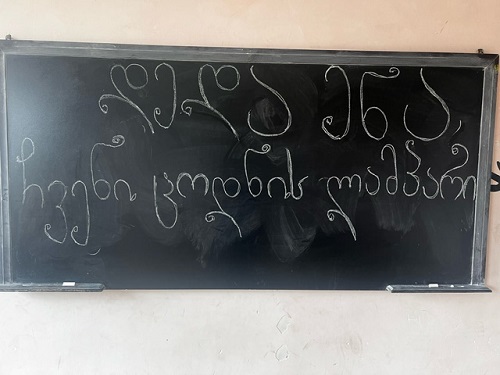 დედა ენა,
ჩვენი ცოდნის ლამპარი